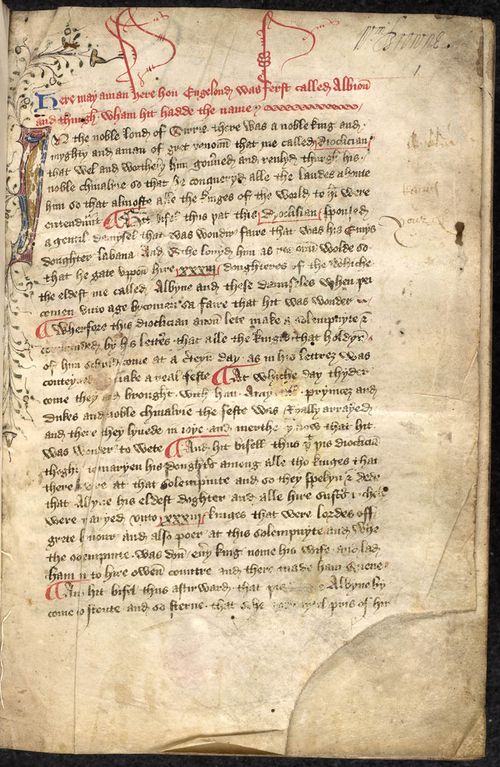 Here may a man here hou Engelond was ferst called Albion
and thurgh wham hit hadde the name
the noble lond of Surrie there was a noble king and
myghty and a man of gret renoun that me called Dioclician
that wel and worthely him gouerned and reuled thurgh his
noble chiualrie so that he conqueryd alle the landes aboute
him so that almoste alle the kinges of the world to him were
entendaunt hit bifel thus þat this Dioclisian spoused
a gentil damysel that was wonder faire that was his Emys
doughter labana And he loued hir as reson wolde so
that he gate vppon hire xxxiij doughteres of the whiche
the eldest me called Albyne and these damiseles when þei
comen vnto age bycomen so faire that hit was wonder
Wherfore this dioclician anon lete make a solempnyte &
commanded by his lettres that alle the kinges that holdyn
of him schuld come at a certeyn day as in his lettrez was
conteyned make a real feste At whiche day thyder
come they and brought with ham prynces and
dukes and noble chiualrie the feste was really arrayed
and there they lyuede in ioye and merthe ynow that hit
was wonder to wete And hit bifell thus þat þis dioclician
thoght to maryen his doughters among alle tho kinges that
there were at that solempnite and so they spekyn & dede
that Albyne his eldest doghter and alle hire sustres riche
were maryed vnto xxxiij kinges that were lordes off
grete honour and also poer at this solempnyte and whan
the solempnite was don euery king nome his wife and lad
ham to hire owen countre and there made ham quene
And hit bifel thus afterward that þis Albyne by
come so stoute and so sterne that sche pris of hir